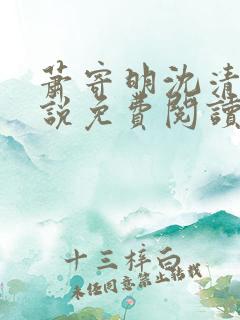 蕭寄明沈清
說免費閱讀
十三梓白
未经同意禁止转载